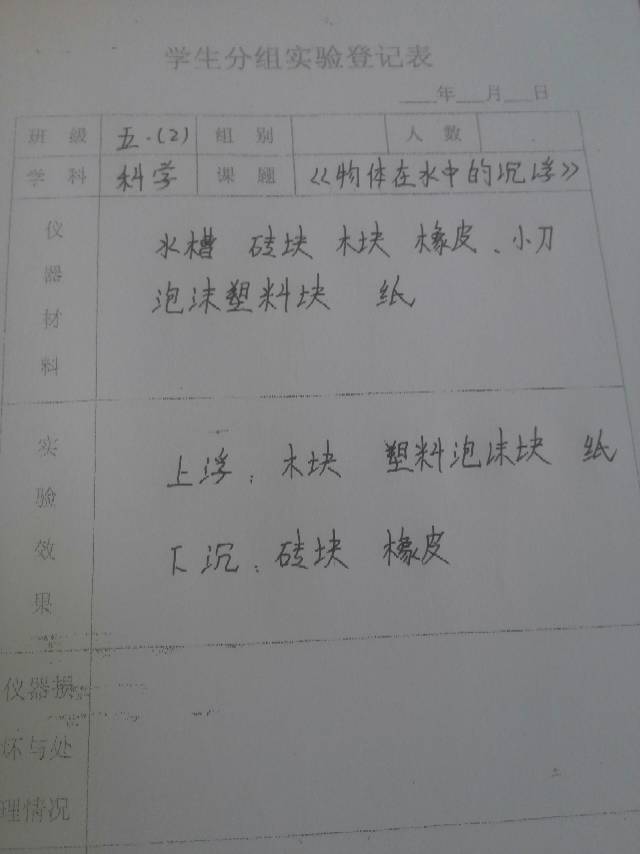 学生分组实验登记表
___年___月___日
班级 五.(2) 组别 人数
学科 科学 课题 《物体在水中的沉浮》
仪器材料
水槽 砖块 木块 橡皮、小刀
泡沫塑料块 纸
实验效果
上浮：木块 塑料泡沫块 纸
下沉：砖块 橡皮
仪器损
坏与处
理情况